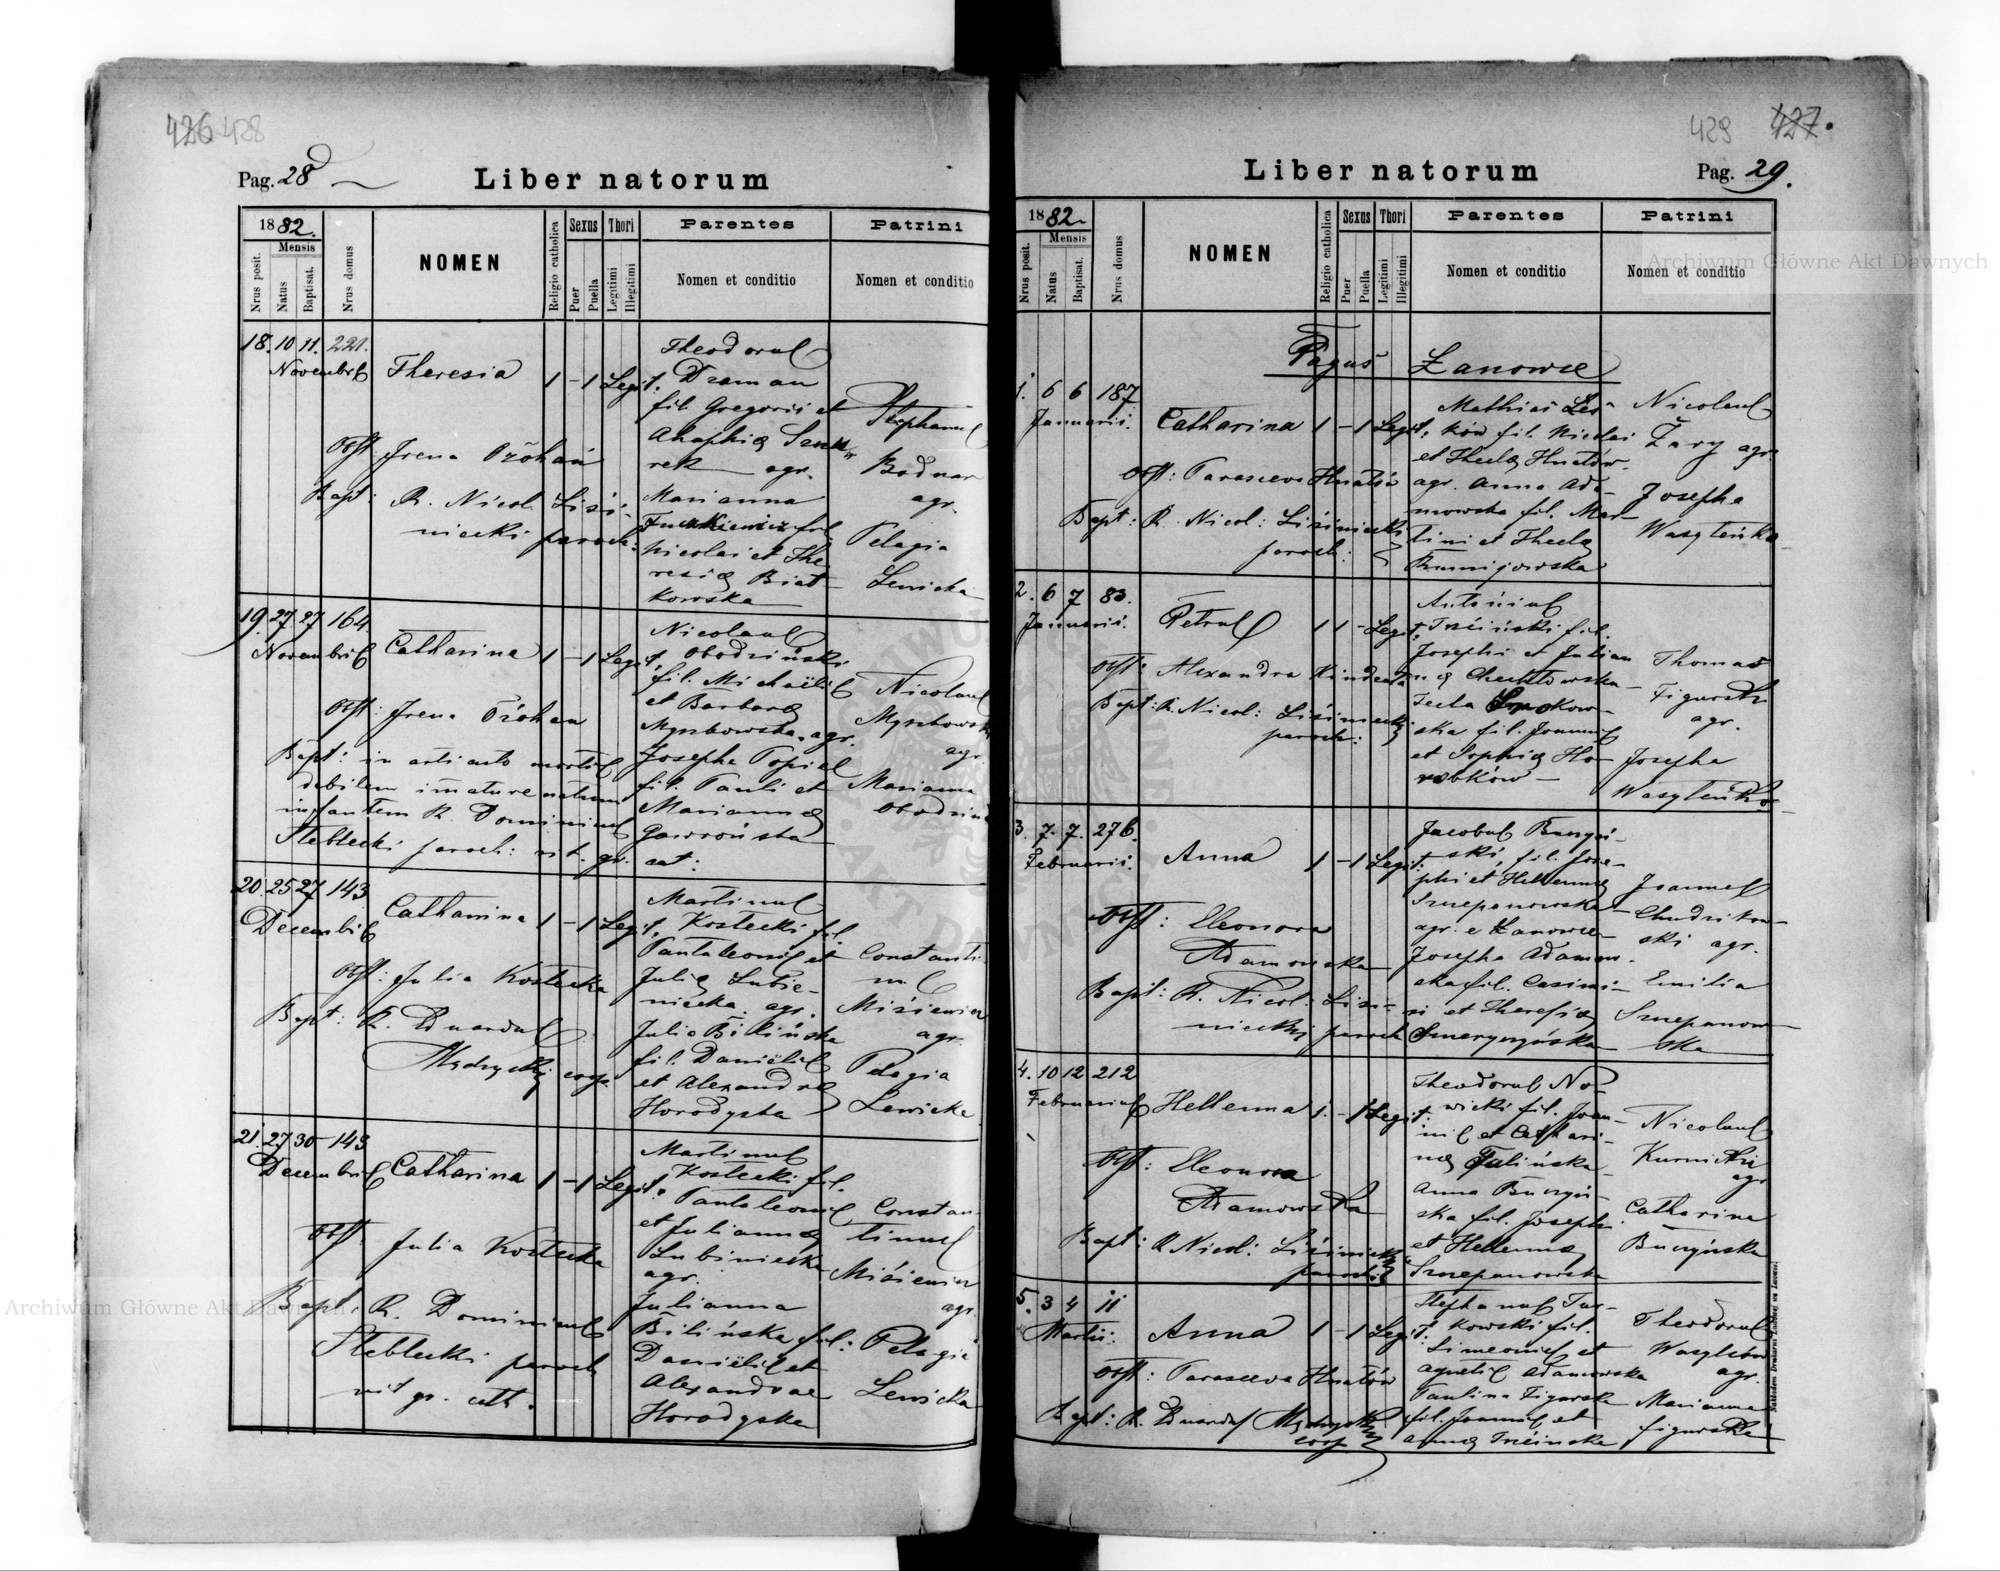 426 428
Pag. 28
Liber natorum
1882.
Mensis
Nrus posit.
Natus
Baptisat.
Nrus domus
NOMEN
Religio catholica
Sexus
Puer
Puella
Thori
Legitimi
Illegitimi
Parentes
Nomen et conditio
Patrini
Nomen et conditio
18. 10 11. 221.
Novembris
Theresia 1 – 1 Legit.
Obst. Irena
Bapt: R. Nicol. Lisi-
niecki paroch:
Theodorus
Draman
fil. Gregorii et
agr.
Marianna
fil.
Nicolai et The
resiæ Biał-
kowska
Stephanus
Bodnar
agr.
Pelagia
Lewicka
19. 27. 27 164
Novembris
Catharina 1 – 1 Legit.
Obst: Irena
Bapt: in articulo mortis
debilem imature natum
infantem R. Dominicus
Steblecki paroch: rit. gr. cat:
Nicolaus
Obodziński
fil. Michaëlis
et Barbaræ
agr.
Josepha Popiel
fil. Pauli et
Mariannæ
Gawrońska
Nicolaus
agr.
Marianna
20. 25 27 143
Decembris
Catharina 1 – 1 Legit.
Obst: Julia Kostecka
Bapt: R. Eduardus
Mędrycki coop.
Martinus
Kostecki fil.
Pantaleonis et
Juliæ Lubie-
niecka agr.
Julia Bilińska
fil. Daniëlis
et Alexandræ
Horodyska
Constanti-
nus
Misiewicz
agr.
Pelagia
Lewicka
21. 27 30 143
Decembris
Catharina 1 – 1 Legit.
Obst: Julia Kostecka
Bapt. R. Dominicus
Steblecki paroch
rit gr. cath.
Martinus
Kostecki fil.
Pantaleonis
et Juliannæ
Lubiniecka
agr.
Julianna
Bilińska fil:
Daniëlis et
Alexandrae
Horodyska
Constan-
tinus
Misiewicz
agr.
Pelagia
Lewicka
429 427.
Liber natorum
Pag. 29.
1882.
Mensis
Nrus posit.
Natus
Baptisat.
Nrus domus
NOMEN
Religio catholica
Sexus
Puer
Puella
Thori
Legitimi
Illegitimi
Parentes
Nomen et conditio
Patrini
Nomen et conditio
Pagus Łanowce
1. 6 6 187
Januarii.
Catharina 1 – 1 Legit.
Obst: Parasceva Hnatów
Bapt: R. Nicol: Lisiniecki
paroch:
Mathias Les-
ków fil. Nicolai
et Theclæ Hnatów
agr. Anna Ada-
mowska fil. Mar-
tini et Theclæ
Nicolaus
Żary agr.
Josepha
Wasyleńko
2. 6 7 83.
Januarii.
Petrus 1 1 – Legit.
Obst: Alexandra
Bapt: R. Nicol: Lisiniecki
paroch:
Antonius
Trzciński fil.
Josephi et Julian
næ
Tecla
ska fil. Joannis
et Sophiæ Ho-
robków
Thomas
Figurski
agr.
Josepha
Wasyleńko
3. 7. 7. 276.
Februarii.
Anna 1 – 1 Legit:
Obst: Eleonora
Adamowska
Bapt: R. Nicol: Lisi-
niecki paroch
Jacobus Buczyń-
ski, fil. Jose-
phi et Hellennæ
Szczepanowska
agr. e Łanowce
Josepha Adamow-
ska fil. Casimi-
ri et Theresiæ
Joannes
Chudzikow-
ski agr.
Emilia
Szczepanow-
ska
4. 10 12 212
Februarius
Hellenna 1 – 1 Legit.
Obst: Eleonora
Adamowska
Bapt: R Nicol: Lisiniecki
paroch
Theodorus No-
wicki fil. Joan-
nis et Cathari-
næ
Anna Buczyń-
ska fil. Josephi
et Hellennæ
Szczepanowska
Nicolaus
agr
Catharina
Buczyńska
5. 3 4 11
Martii:
Anna 1 – 1 Legit:
Obst: Parasceva Hnatów
Bapt: R. Eduardus Mędrycki
coop
Stephanus Tur-
kowski fil.
Simeonis et
Agnetis Adamowska
Paulina Figurska
fil. Joannis et
Annæ Trzcinska
Theodorus
agr.
Marianna
Figurska
Archiwum Główne Akt Dawnych
Archiwum Główne Akt Dawnych